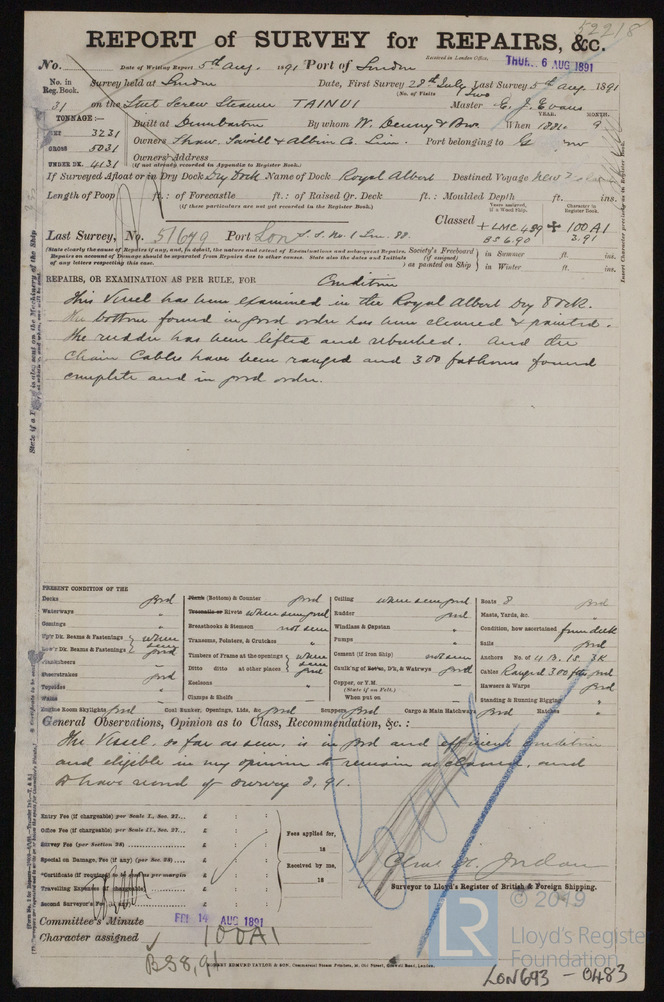 52218
REPORT of SURVEY for REPAIRS, &c.
Received in London Office,
No. Date of Writing Report 5th Aug. 1891 Port of London THUR. 6 AUG 1891
No. in Reg. Book. Survey held at London Date, First Survey 28th July Last Survey 5th Aug 1891
(No. of Visits Two
31 on the Steel Screw Steamer TAINUI Master C. J. Evans
TONNAGE:— YEAR. MONTH.
NET 3231 Built at Dumbarton By whom W. Denny & Bros. When 1884 9
GROSS 5031 Owners Shaw, Savill & Albion Co. Lim. Port belonging to
UNDER DK. 4131 Owners' Address
(if not already recorded in Appendix to Register Book.)
If Surveyed Afloat or in Dry Dock Dry Dock Name of Dock Royal Albert Destined Voyage New
Length of Poop ft.: of Forecastle ft.: of Raised Qr. Deck ft.: Moulded Depth ft. ins.
(If these particulars are not yet recorded in the Register Book.)
Classed + LMC 4.89 BS 6.90 100A1 3,91
Character in Register Book.
Last Survey, No. 51679 Port Lon S.S. No. 1 Lon. 88
(State clearly the cause of Repairs if any, and, in detail, the nature and extent of Examinations and subsequent Repairs.
Repairs on account of Damage should be separated from Repairs due to other causes. State also the dates and Initials
of any letters respecting this case.
Society's Freeboard (if assigned) as painted on Ship in Summer ft. ins.
in Winter ft. ins.
REPAIRS, OR EXAMINATION AS PER RULE, FOR Condition
This Vessel has been examined in the Royal Albert Dry Dock.
The bottom found in good order has been cleaned & painted.
The rudder has been lifted and rebushed. And the
Chain Cables have been ranged and 300 fathoms found
complete and in good order.
PRESENT CONDITION OF THE
Decks good
Waterways "
Comings "
Up'r Dk. Beams & Fastenings where
Low'r Dk. Beams & Fastenings seen good
Planksheers "
Sheerstrakes good
Topsides "
Wales "
Engine Room Skylights good
Plank (Bottom) & Counter good
Treenails or Rivets where seen good
Breasthooks & Stemson not seen
Transoms, Pointers, & Crutches "
Timbers of Frame at the openings where
Ditto ditto at other places seen good
Keelsons "
Clamps & Shelfs "
Coal Bunker, Openings, Lids, &c. good
Ceiling where seen good
Rudder good
Windlass & Capstan "
Pumps "
Cement (if Iron Ship) not seen
Caulk'ng of Botm, D'k, & Watrwys good
Copper, or Y.M.
(State if on Felt.)
When put on
Scuppers good
Cargo & Main Hatchways good
Boats 8 good
Masts, Yards, &c. "
Condition, how ascertained from deck
Sails good
Anchors No. of 4B. 1S. 3K
Cables Ranged 300 fms good
Hawsers & Warps good
Standing & Running Rigging "
Hatches "
General Observations, Opinion as to Class, Recommendation, &c.:
The Vessel, so far as seen, is in good and efficient condition
and eligible in my opinion to remain as classed, and
to have record of survey 8,91.
Entry Fee (if chargeable) per Scale I., Sec. 27... £ : :
Office Fee (if chargeable) per Scale II., Sec. 27... £ : :
Survey Fee (per Section 28) £ : :
Special on Damage, Fee (if any) (per Sec. 28)... £ : :
*Certificate (if required) to be sent as per margin £ : :
Travelling Expenses (if chargeable) £ : :
Second Surveyor's Fee £ : :
Fees applied for,
18
Received by me,
18
Chas. H. Jordan
Surveyor to Lloyd's Register of British & Foreign Shipping.
Committee's Minute FRI. 14 AUG 1891
Character assigned 100A1
BS 8,91
© 2019
LR
Lloyd's Register
Foundation
LON693-0483